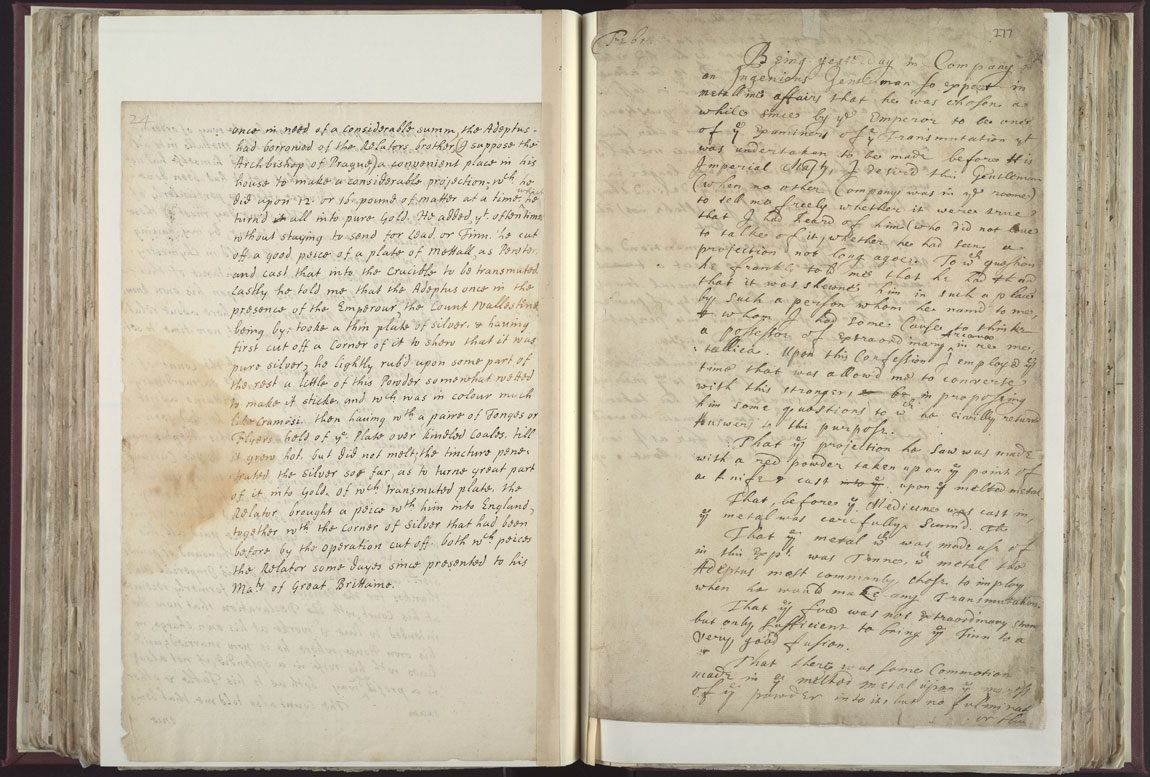 24
once in need of a considerable summ, the Adeptus
had borrowed of the Relators brother (I suppose the
Archbishop of Prague) a convenient place in his
house to make a considerable projection; wch he
did upon 12. or 16. pound of matter at a time, wch he
turn'd it all into pure Gold. He added, yt. oftentimes
without staying to send for Lead, or Tinn. he cut
off a good peice of a plate of mettall as Pewter,
and cast that into the Crucible to be transmuted.
Lastly he told me, that the Adeptus once in the
presence of the Emperour, the Count Wallestine
being by; tooke a thin plate of silver. & having
first cut off a Corner of it to shew that it was
pure silver, he lightly rub'd upon some part of
the rest a little of this Powder somewhat wetted
to make it sticke, and wch was in colour much
like Cramosi. then having wth a paire of Tonges or
Flyers held of ye. Plate over kindled Coales, till
it grew hot, but did not melt; the tincture pene-
trated the silver soe far, as to turne great part
of it into Gold. of wch transmuted plate, the
Relator, brought a peice wth him into England,
together wth the Corner of silver that had been
before by the operation cut off. both wch peices
the Relator some dayes since presented to his
Maty of Great Brittaine.
277
Being yesterday in Company
an Ingenious Gentleman so expert in
metalline affairs that he was chosen a
while since by ye Emperor to be one
of ye Examiners of ye Transmutation yt
was undertaken to be made before His
Imperial Maty, I desird this Gentleman
(when no other Company was in ye roome)
to tell me freely whether it were true
that I had heard of him (who did not love
to talke of it) whether he had seen a
projection not long agoe. To wch question
he frankly told me that he had &
that it was shewn him in such a place
by such a person whom he namd to me,
& whom I had some Cause to thinke
a possessor of extraordinary arcana in re me-
tallica. Upon this Confession I employd ye
time that was allowd me to converse
with this stranger, in proposing
him some questions to wch he civilly returnd
Answers to this purpose.
That ye projection he saw was made
with a red powder taken up on ye point of
a knife & cast into ye upon ye melted metal
That, before ye Medicine was cast in,
ye metal was carefully scum'd. The
That ye metal wch was made use of
in this was Tinne, wch metal the
Adeptus most commonly chose to imploy
when he would make any Transmutation.
That ye fire was not extraordinary strong
but only sufficient to bring ye Tinn to a
very good fusion.
That there was some Commotion
made in ye melted metal upon ye
of ye powder into it, but no fulminat
or